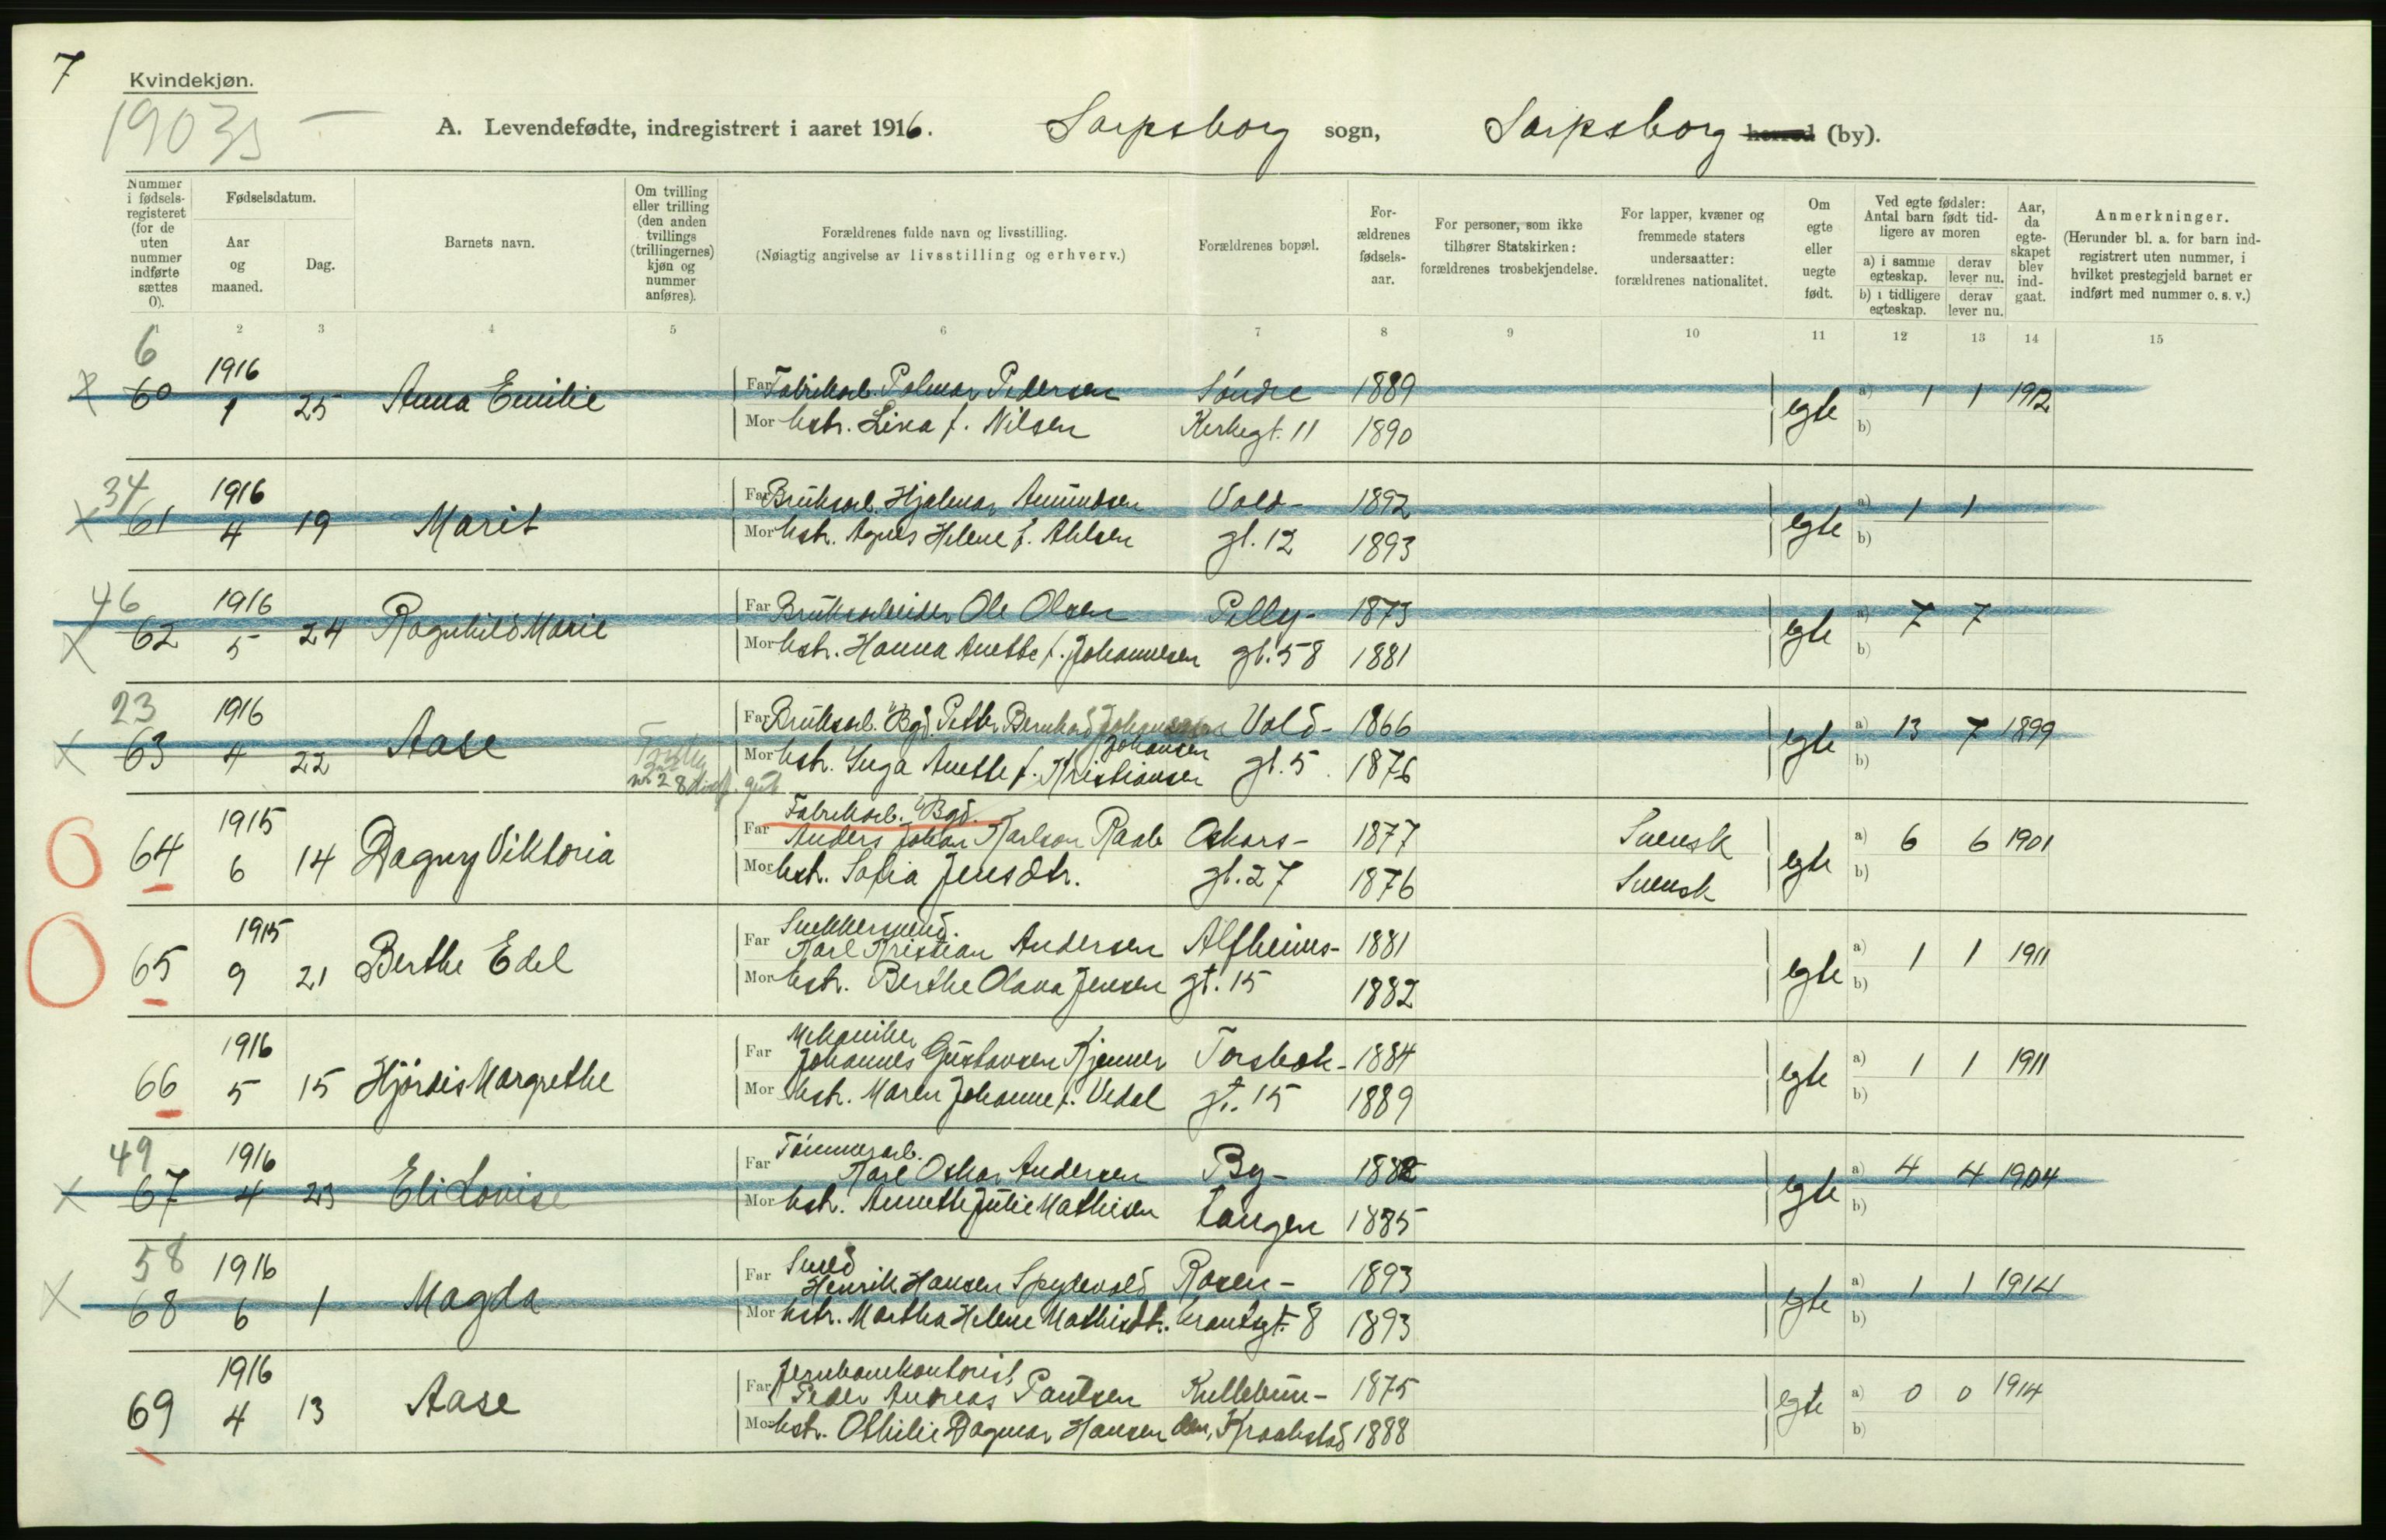 7
Kvindekjøn.
19035 —
A. Levendefødte, indregistrert i aaret 1916. Sarpsborg sogn, Sarpsborg herred (by).
Nummer i fødsels-registeret (for de uten nummer indførte sættes 0).
Fødselsdatum.
Aar og maaned.
Dag.
Barnets navn.
Om tvilling eller trilling (den anden tvillings (trillingernes) kjøn og nummer anføres).
Forældrenes fulde navn og livsstilling.
(Nøiagtig angivelse av livsstilling og erhverv.)
Forældrenes bopæl.
For-ældrenes fødsels-aar.
For personer, som ikke tilhører Statskirken: forældrenes trosbekjendelse.
For lapper, kvæner og fremmede staters undersaatter: forældrenes nationalitet.
Om egte eller uegte født.
Ved egte fødsler: Antal barn født tid-ligere av moren
a) i samme egteskap. derav lever nu.
b) i tidligere egteskap. derav lever nu.
Aar, da egte-skapet blev ind-gaat.
Anmerkninger.
(Herunder bl. a. for barn ind-registrert uten nummer, i hvilket prestegjeld barnet er indført med nummer o. s. v.)
1 2 3 4 5 6 7 8 9 10 11 12 13 14 15
6
60 1916 1 25 Anna Emilie Far Fabrikarb. Palmar Pedersen Søndre 1889 egte a) 1 1 1912
Mor Hstr. Lina f. Nilsen Kirkegt. 11 1890 b)
34
61 1916 4 19 Marit Far Bruksarb. Hjalmar Amundsen Vold- 1892 egte a) 1 1
Mor Hstr. Agnes Helene f. Ahlsen gt. 12 1893 b)
46
62 1916 5 24 Ragnhild Marie Far Bruksarbeider Ole Olsen Pelly- 1873 egte a) 7 7
Mor Hstr. Hanna Anette f. Johannesen gt. 58 1881 b)
23
63 1916 4 22 Aase Far Bruksarb. v/Bgd. Petter Bernhard Johansen Vold- 1866 egte a) 13 7 1899
Johansen
Mor Hstr. Inga Anette f. Kristiansen gt. 5 1876 b)
nr 28 gut
64 1915 6 14 Dagny Viktoria Fabrikarb. v/Bgd.
Far Anders Johan Karlson Raab Oskars- 1877 Svensk egte a) 6 6 1901
Mor Hstr. Sofia Jensdtr. gt. 27 1876 Svensk b)
65 1915 9 21 Berthe Edel Snekkersvend.
Far Karl Kristian Andersen Alfheims- 1881 egte a) 1 1 1911
Mor Hstr. Berthe Olava Jensen gt. 15 1882 b)
66 1916 5 15 Hjördis Margrethe Mekaniker
Far Johannes Gustavsen Kjenner Torsbæk- 1884 egte a) 1 1 1911
Mor Hstr. Maren Johanne f. Vedel gt. 15 1889 b)
49
67 1916 4 23 Eli Lovise Tömmerarb.
Far Karl Oskar Andersen By- 1882 egte a) 4 4 1904
Mor Hstr. Annette Julie Mathisen tangen 1885 b)
58
68 1916 6 1 Magda Smed
Far Henrik Hansen Spydevold Rosen- 1893 egte a) 1 1 1914
Mor Hstr. Martha Helene Mathisdt. krantsgt. 8 1893 b)
69 1916 4 13 Aase Jernbanekontorist
Far Peder Andreas Paulsen Kullebun- 1875 egte a) 0 0 1914
Mor Hstr. Othilie Dagmar Hansen den, Kraakstad 1888 b)